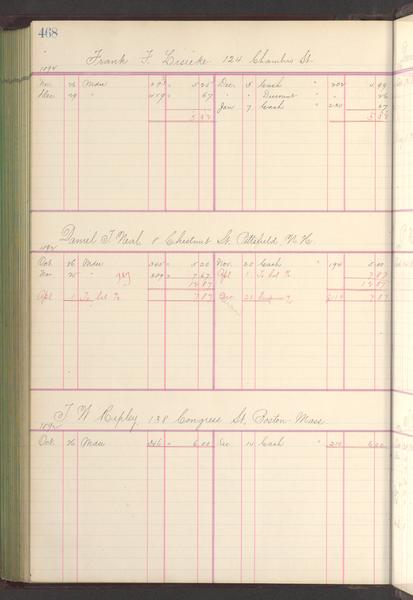 468
Frank F. 124 Chambers St.
1892
Nov. 26 Mdse 5 25 Dec. 8 Cash " 202 4 99
Dec. 29 " 459 " 67 " " Discount " " 26
Jan 7 Cash " 230 67
5 92 5 92
Daniel J Neal 8 Chestnut St. Pittsfield, N.H.
1892
Oct. 26 Mdse 245 " 5 20 Nov. 25 Cash " 194 5 00
Nov. 25 " 309 " 7 67 Apl 1 To bal % 7 87
12 87 12 87
Apl 1 To bal % 7 87 Dec 28 % 7 87
J W Ripley 138 Congress St, Boston Mass
1892
Oct. 26 Mdse 246 " 6 00 Dec 14 Cash " 211 6 00